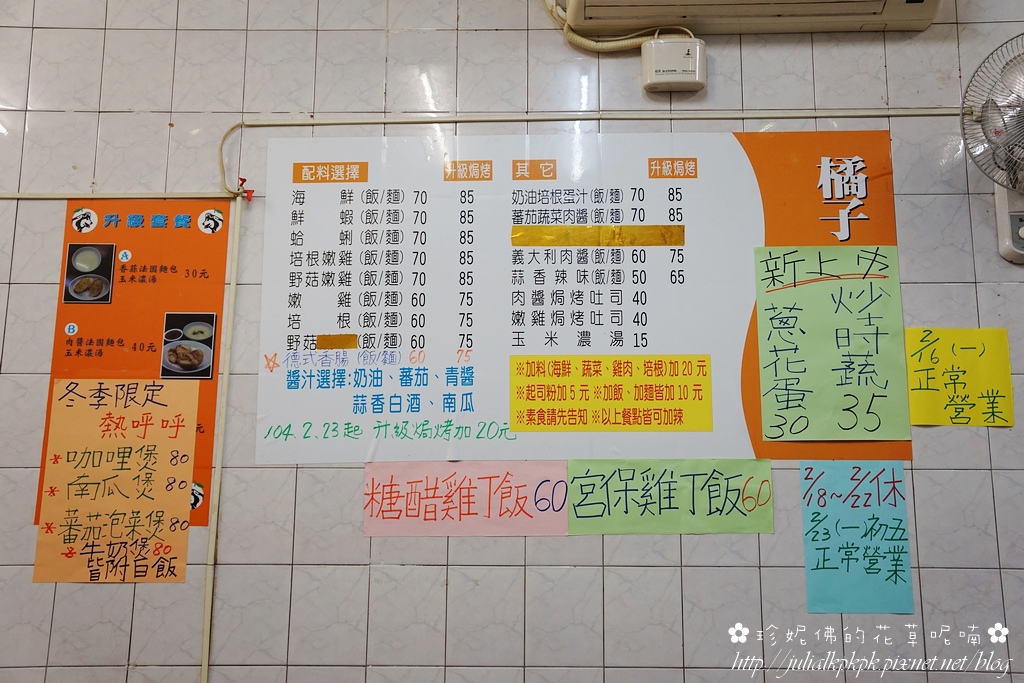 升級套餐
A
香蒜法國麵包
玉米濃湯 30元
B
肉醬法國麵包
玉米濃湯 40元
冬季限定
熱呼呼
咖哩煲 80
南瓜煲 80
蕃茄泡菜煲 80
牛奶煲 80
皆附白飯
配料選擇 升級焗烤
海鮮(飯/麵) 70 85
鮮蝦(飯/麵) 70 85
蛤蜊(飯/麵) 70 85
培根嫩雞(飯/麵) 70 85
野菇嫩雞(飯/麵) 70 85
嫩雞(飯/麵) 60 75
培根(飯/麵) 60 75
野菇 (飯/麵) 60 75
德式香腸(飯/麵) 60 75
醬汁選擇:奶油、蕃茄、青醬
蒜香白酒、南瓜
104.2.23起 升級焗烤加20元
其它 升級焗烤
奶油培根蛋汁(飯/麵) 70 85
蕃茄蔬菜肉醬(飯/麵) 70 85
義大利肉醬(飯/麵) 60 75
蒜香辣味(飯/麵) 50 65
肉醬焗烤吐司 40
嫩雞焗烤吐司 40
玉米濃湯 15
※加料(海鮮、蔬菜、雞肉、培根)加 20 元
※起司粉加 5 元 ※加飯、加麵皆加 10 元
※素食請先告知 ※以上餐點皆可加辣
橘子
新上市
炒時蔬 35
蔥花蛋 30
2/16 (一)
正常
營業
糖醋雞丁飯 60
宮保雞丁飯 60
2/18~2/22休
2/23(一)初五
正常營業
珍妮佛的花草呢喃
http://julialkpkpk.pixnet.net/blog